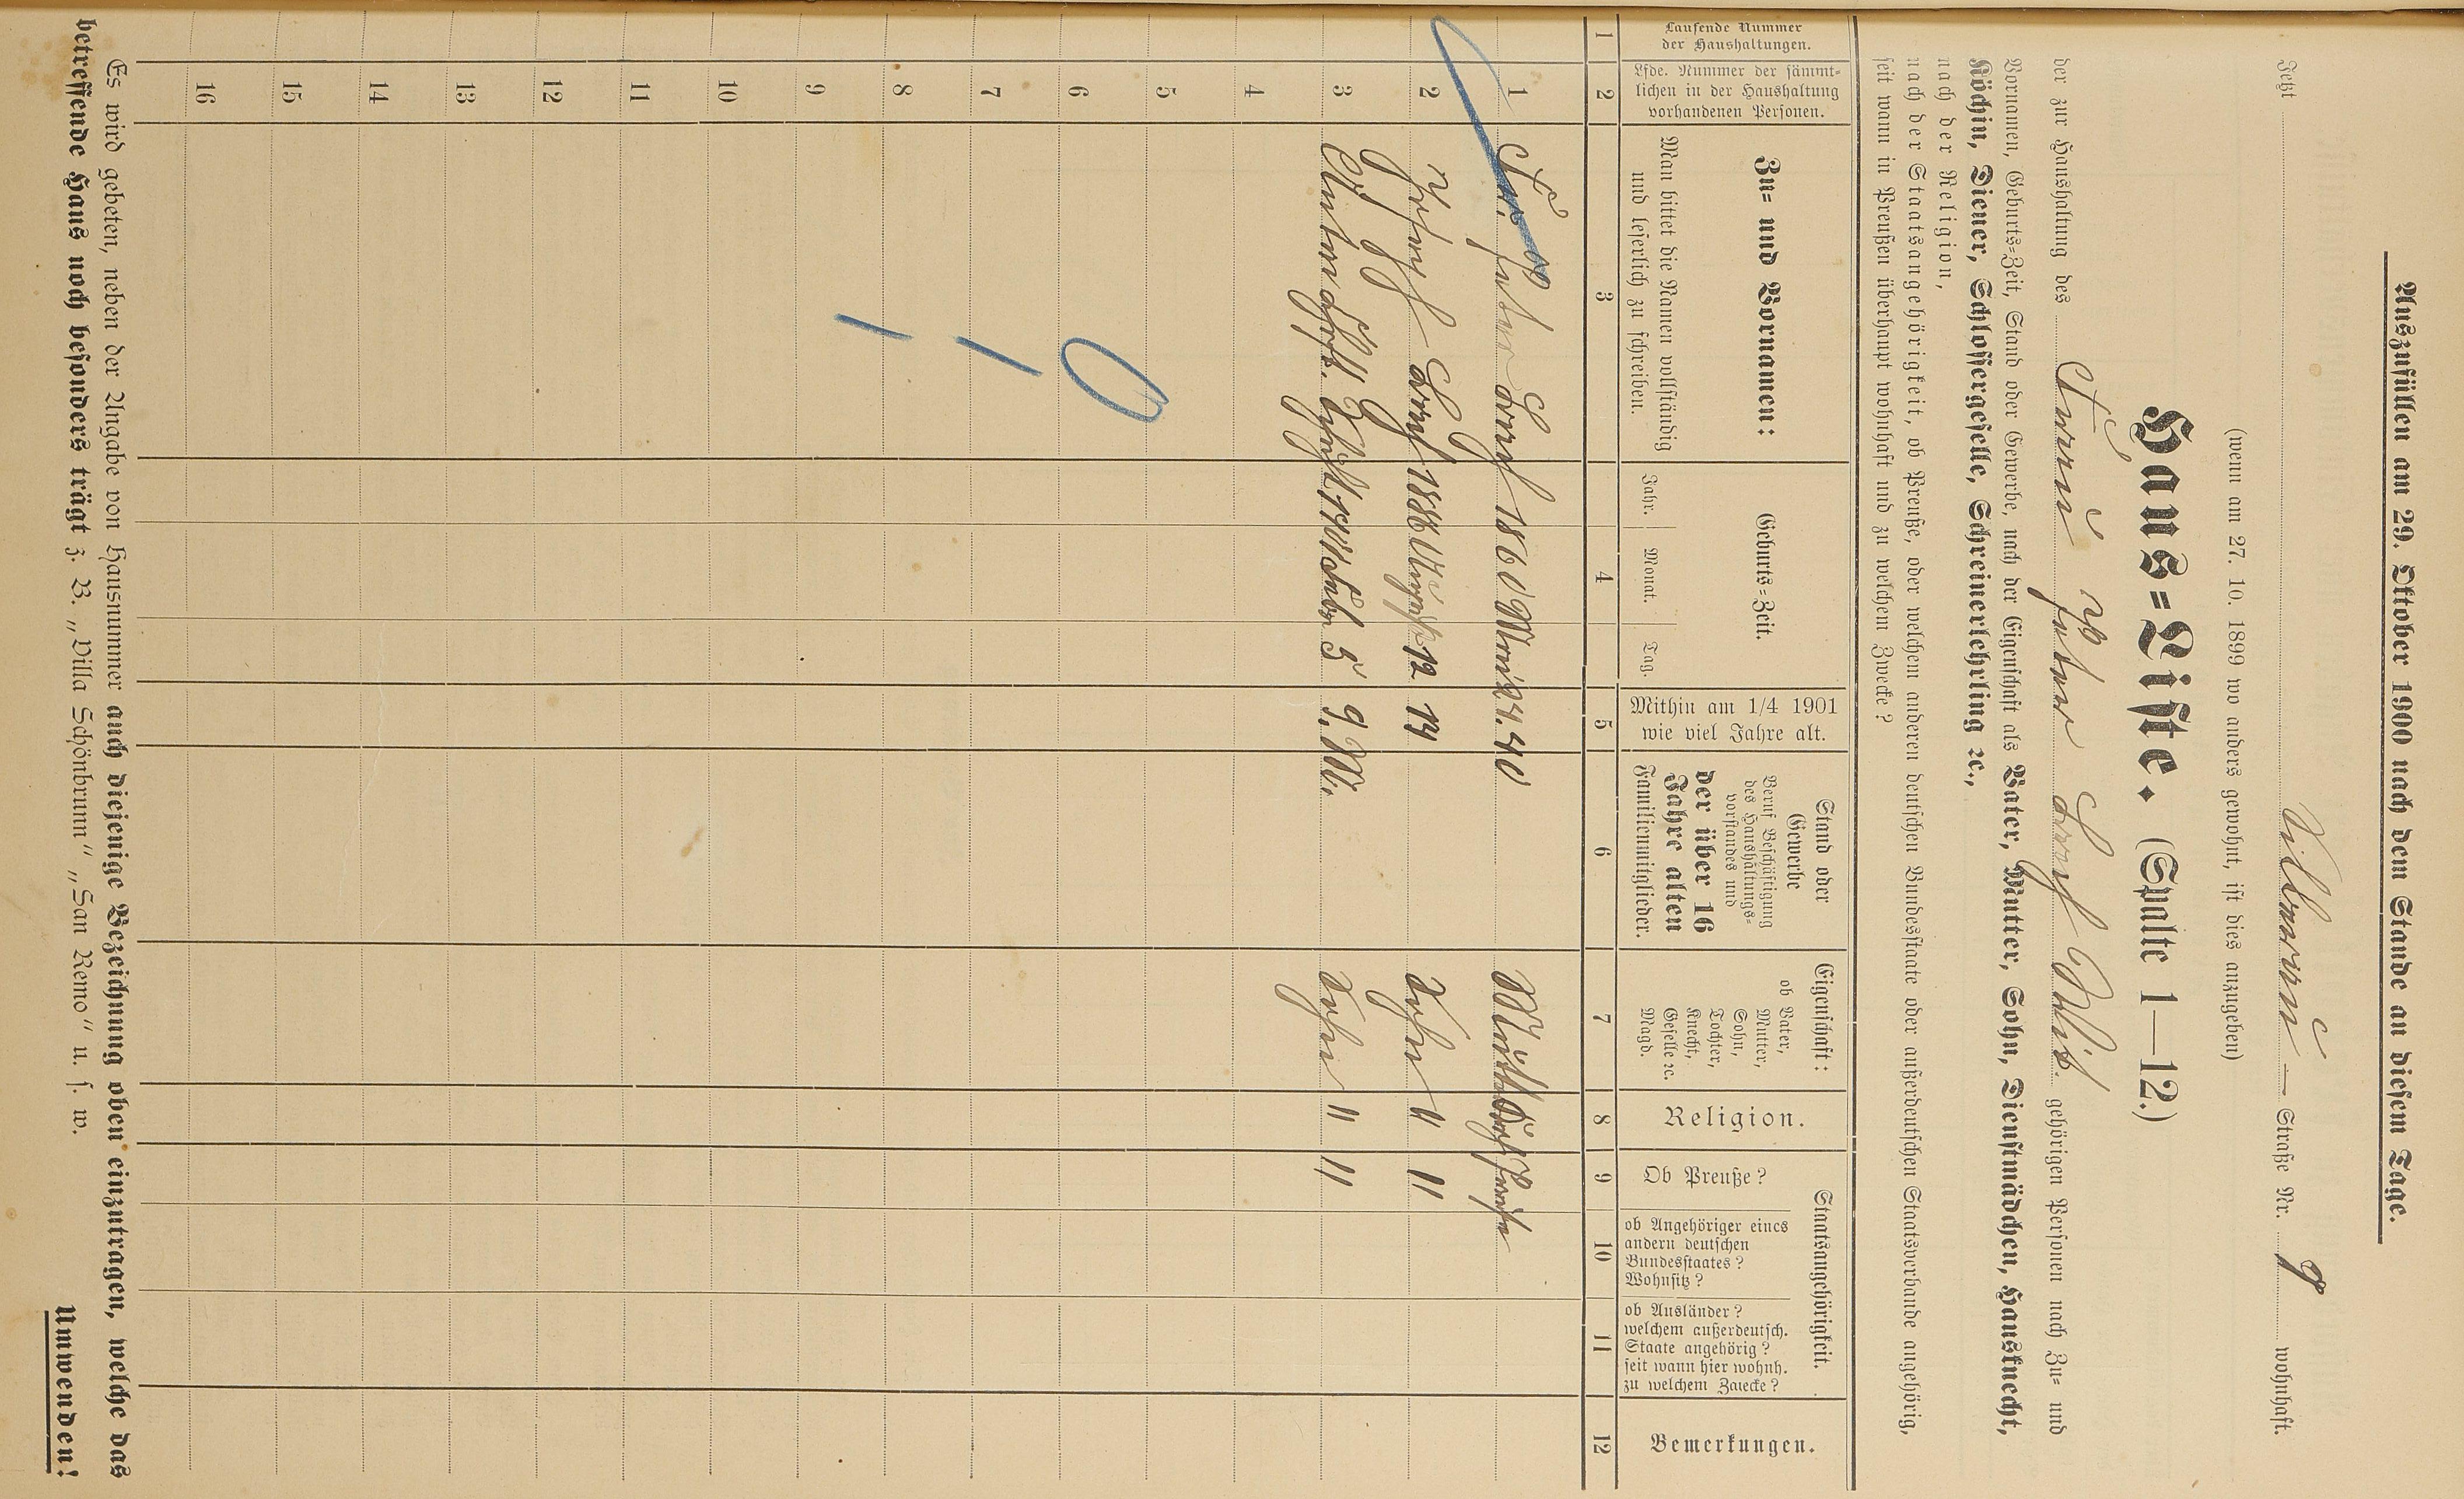 Auszufüllen am 29. Oktober 1900 nach dem Stande an diesem Tage.
Jetzt Straße Nr. 9 wohnhaft.
(wenn am 27. 10. 1899 wo anders gewohnt, ist dies anzugeben)
Haus=Liste. (Spalte 1—12.)
der zur Haushaltung des gehörigen Personen nach Zu= und
Vornamen, Geburts=Zeit, Stand oder Gewerbe, nach der Eigenschaft als Vater, Mutter, Sohn, Dienstmädchen, Hausknecht,
Köchin, Diener, Schlossergeselle, Schreinerlehrling ꝛc.,
nach der Religion,
nach der Staatsangehörigkeit, ob Preuße, oder welchen anderen deutschen Bundesstaate oder außerdeutschen Staatsverbande angehörig,
seit wann in Preußen überhaupt wohnhaft und zu welchem Zwecke?
Laufende Nummer
der Haushaltungen.
Lfde. Nummer der sämmt=
lichen in der Haushaltung
vorhandenen Personen.
Zu= und Vornamen:
Man bittet die Namen vollständig
und leserlich zu schreiben.
Geburts=Zeit.
Jahr. Monat. Tag.
Mithin am 1/4 1901
wie viel Jahre alt.
Stand oder
Gewerbe
Beruf Beschäftigung
des Haushaltungs=
vorstandes und
der über 16
Jahre alten
Familienmitglieder.
Eigenschaft:
ob Vater,
Mutter,
Sohn,
Tochter,
Knecht,
Geselle ꝛc.
Magd.
Religion.
Staatsangehörigkeit.
Ob Preuße?
ob Angehöriger eines
andern deutschen
Bundesstaates?
Wohnsitz?
ob Ausländer?
welchem außerdeutsch.
Staate angehörig?
seit wann hier wohnh.
zu welchem Zwecke?
Bemerkungen.
1 2 3 4 5 6 7 8 9 10 11 12
1 40
2 1886 August 12 14
3 5 9
4
5
6
7
8
9
10
11
12
13
14
15
16
Es wird gebeten, neben der Angabe von Hausnummer auch diejenige Bezeichnung oben einzutragen, welche das
betreffende Haus noch besonders trägt z. B. „Villa Schönbrunn“ „San Remo“ u. s. w.
Umwenden!